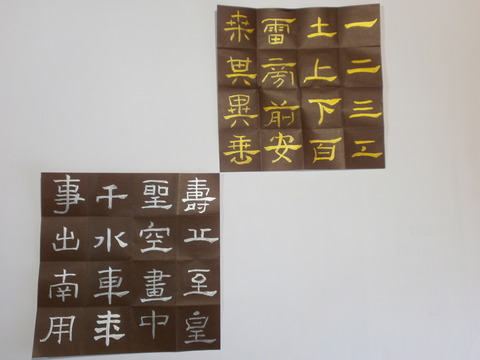 一二三工
土上下百
雷旁前安
其異垂
壽正至皇
聖空畫中
千水車来
事出南用